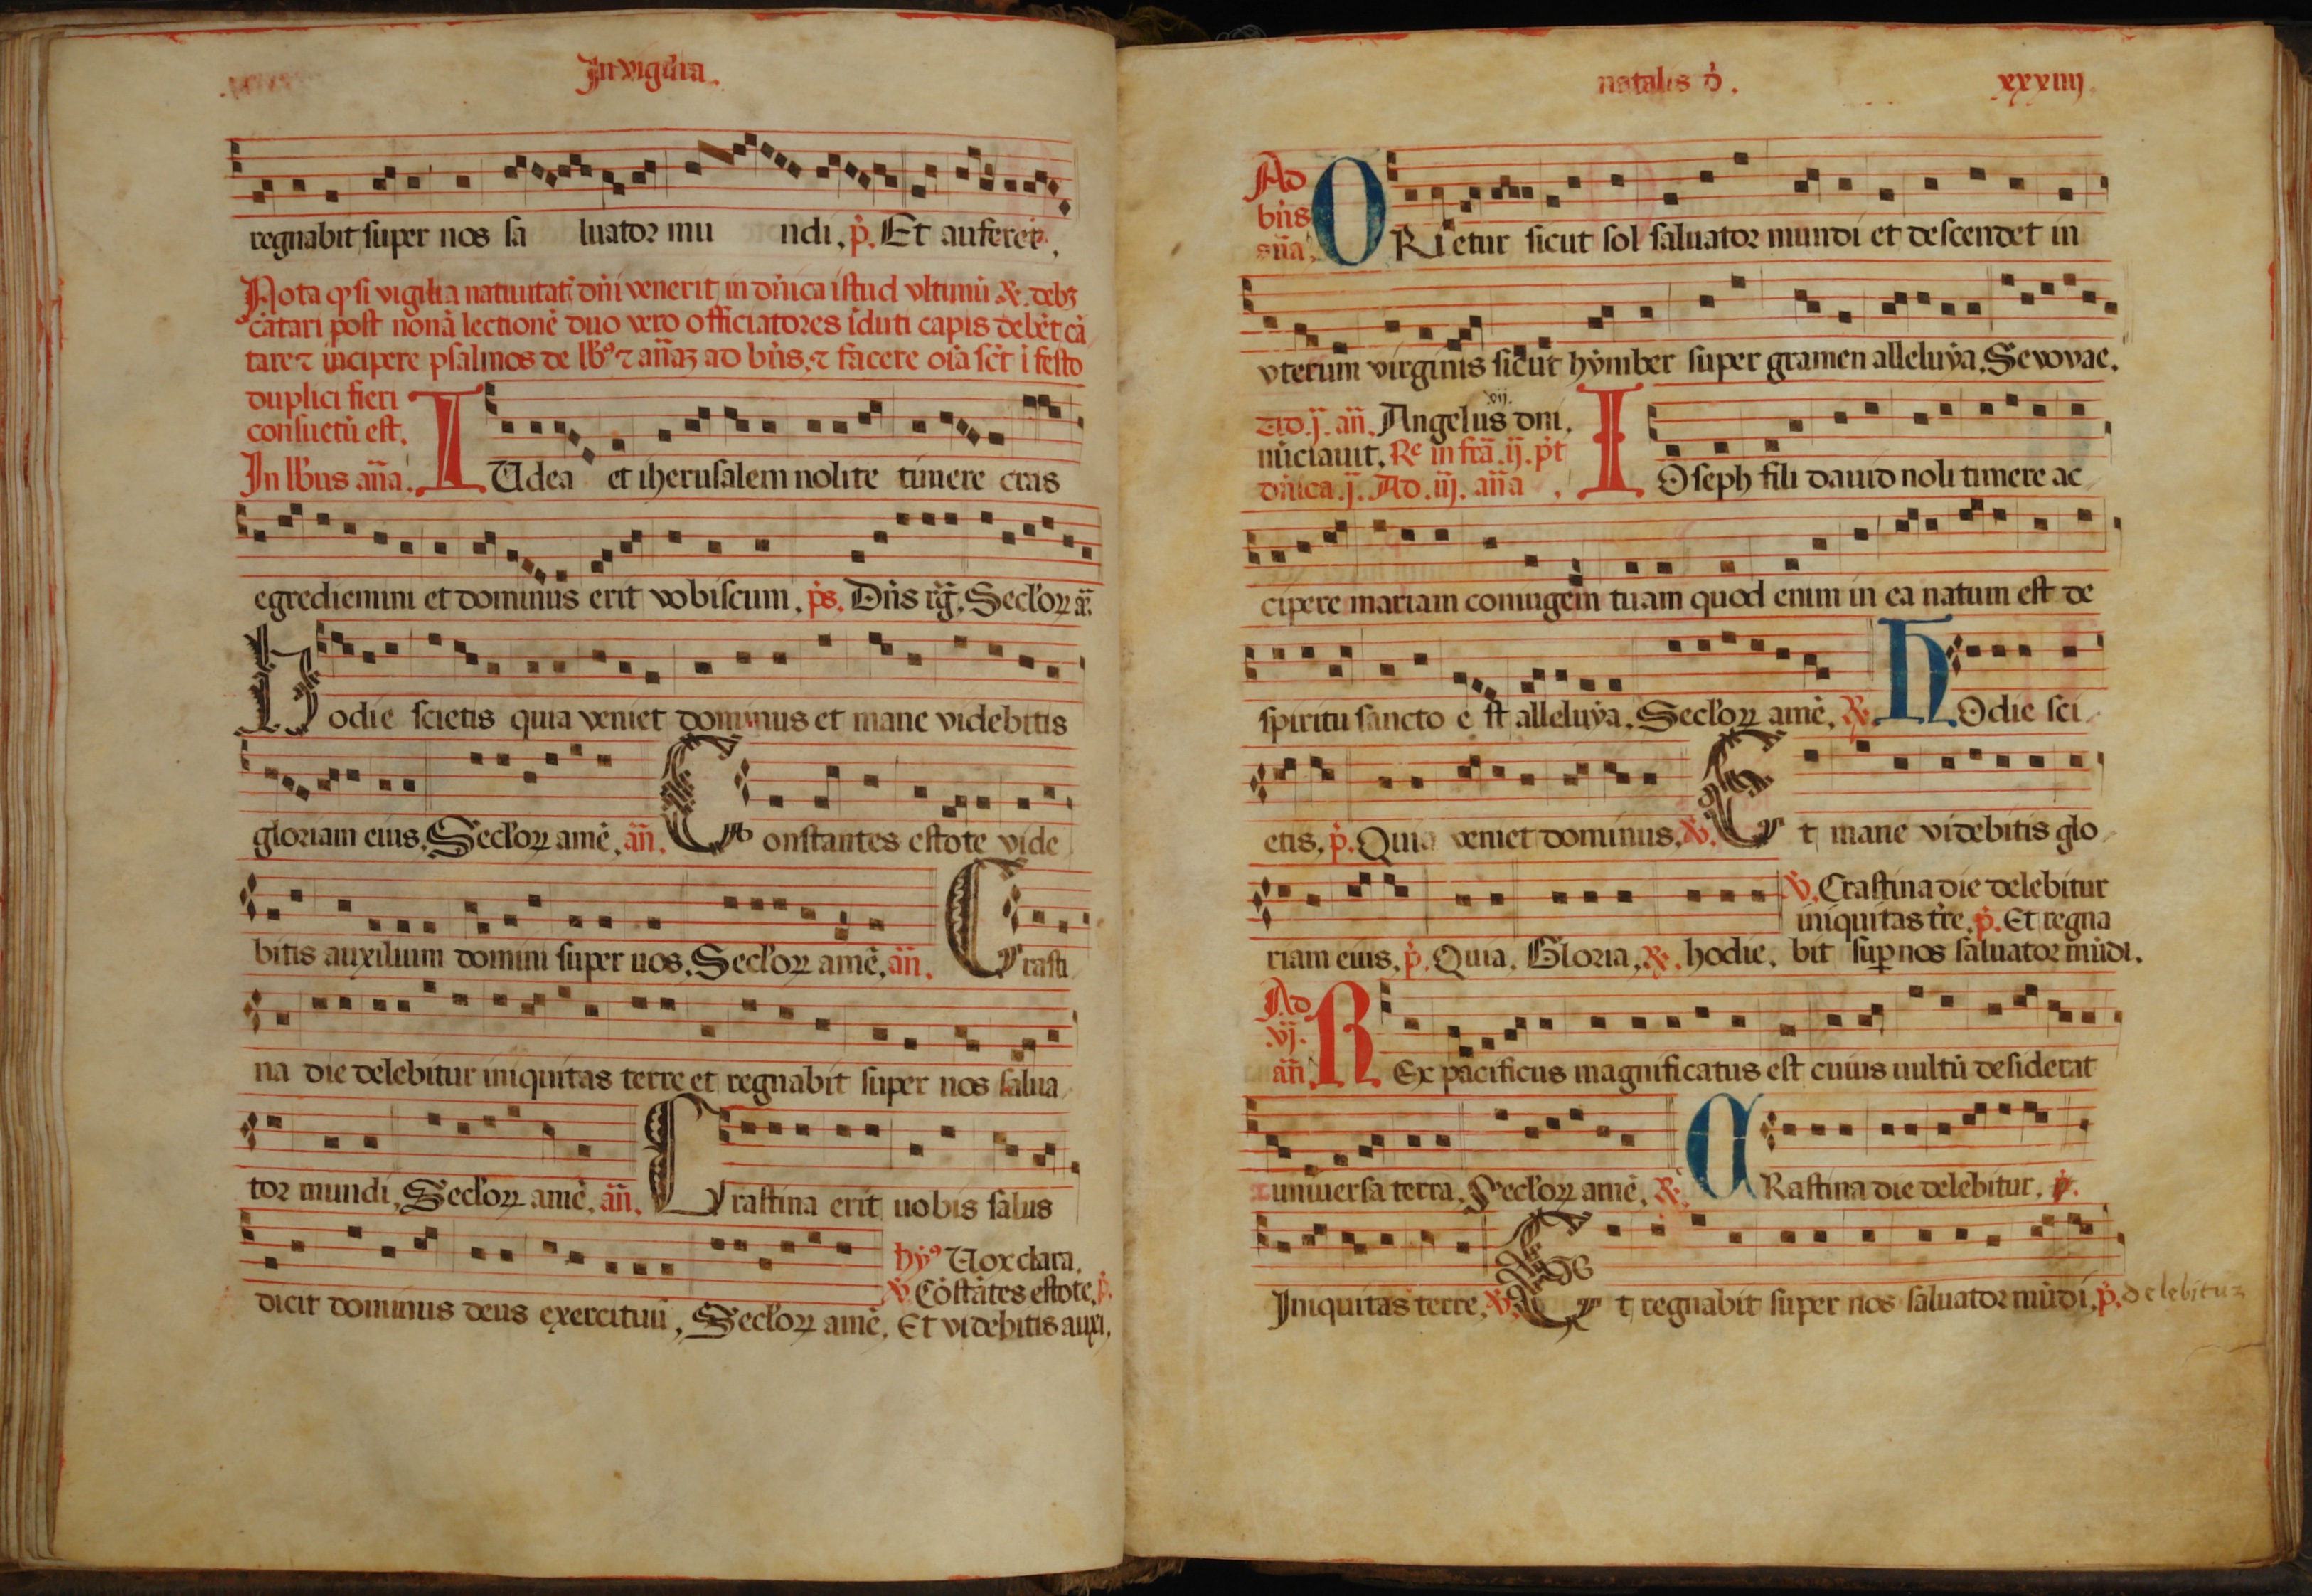 In vigilia.
regnabit super nos sa luator mu ndi. p̄. Et auferet̄.
Nota ꝙ si vigilia natiuitat̄ dn̄i venerit in dn̄ica istud vltimū ℟. debꝫ
cātari post nonā lectionē duo vero officiatores īduti capis debēt cā
tare ⁊ incipere psalmos de lb̄ꝰ ⁊ an̄aꝫ ad bn̄s. ⁊ facere oīa sc̄t ī festo
duplici fieri
consuetū est.
In lb̄us an̄a. IUdea et iherusalem nolite timere cras
egrediemini et dominus erit vobiscum. p̄s. Dn̄s rḡ. Secl'oꝝ ā.
Hodie scietis quia veniet dominus et mane videbitis
gloriam eius. Secl'oꝝ amē. an̄. Constantes estote vide
bitis auxilium domini super uos. Secl'oꝝ amē. an̄. Crasti
na die delebitur iniquitas terre et regnabit super nos salua
tor mundi. Secl'oꝝ amē. an̄. Crastina erit uobis salus
hȳꝰ Uox clara.
℣ Cōstātes estote. p̄.
dicit dominus deus exercituū. Secl'oꝝ amē. Et videbitis auxi.
natalis d̄. xxxiiij
Ad
bn̄s
ORietur sicut sol saluator mundi et descendet in
vterum virginis sicut hymber super gramen alleluya. Sevovae.
vij.
Ad .j. an̄. Angelus dn̄i.
nūciauit. Re in fr̄a .ij. p̄t
dn̄ica .j. Ad .iij. an̄a . IOseph fili dauid noli timere ac
cipere mariam coniugem tuam quod enim in ea natum est de
spiritu sancto e st alleluya. Secl'oꝝ amē. ℟. hOdie sci
etis. p̄. Quia veniet dominus. ℣. Et mane videbitis glo
℣. Crastina die delebitur
iniquitas tr̄e. p̄. Et regna
riam eius. p̄. Quia. Gloria. ℟. hodie. bit suꝑ nos saluator mūdi.
Ad
.vj.
an̄ REx pacificus magnificatus est cuius uultū desiderat
uniuersa terra. Secl'oꝝ amē. ℟. CRastina die delebitur. p̄.
Iniquitas terre. ℣. Et regnabit super nos saluator mūdi. p̄. delebitur